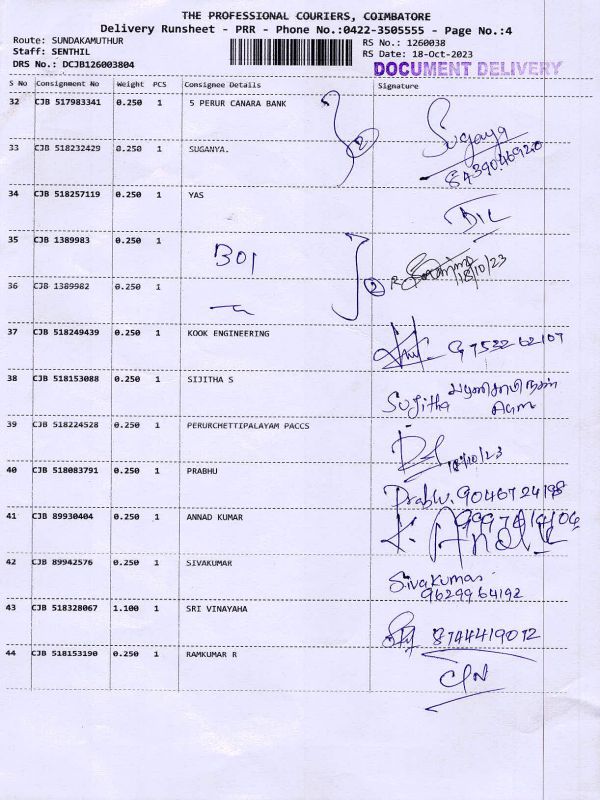 THE PROFESSIONAL COURIERS, COIMBATORE
Delivery Runsheet - PRR - Phone No.:0422-3505555 - Page No.:4
Route: SUNDAKAMUTHUR
RS No.: 1260038
Staff: SENTHIL
RS Date: 18-Oct-2023
DRS No.: DCJB126003804
DOCUMENT DELIVERY
S No Consignment No Weight PCS Consignee Details Signature
32 CJB 517983341 0.250 1 5 PERUR CANARA BANK
2
Sugaya
33 CJB 518232429 0.250 1 SUGANYA.
8439046920
34 CJB 518257119 0.250 1 YAS
35 CJB 1389983 0.250 1 BOI
18/10/23
36 CJB 1389982 0.250 1
2
37 CJB 518249439 0.250 1 KOOK ENGINEERING
9753262107
38 CJB 518153088 0.250 1 SIJITHA S
Sujitha
39 CJB 518224528 0.250 1 PERURCHETTIPALAYAM PACCS
18/10/23
40 CJB 518083791 0.250 1 PRABHU
Prabu. 9046724198
41 CJB 89930404 0.250 1 ANNAD KUMAR
42 CJB 89942576 0.250 1 SIVAKUMAR
Sivakumar
9629964192
43 CJB 518328067 1.100 1 SRI VINAYAHA
8744419072
44 CJB 518153190 0.250 1 RAMKUMAR R